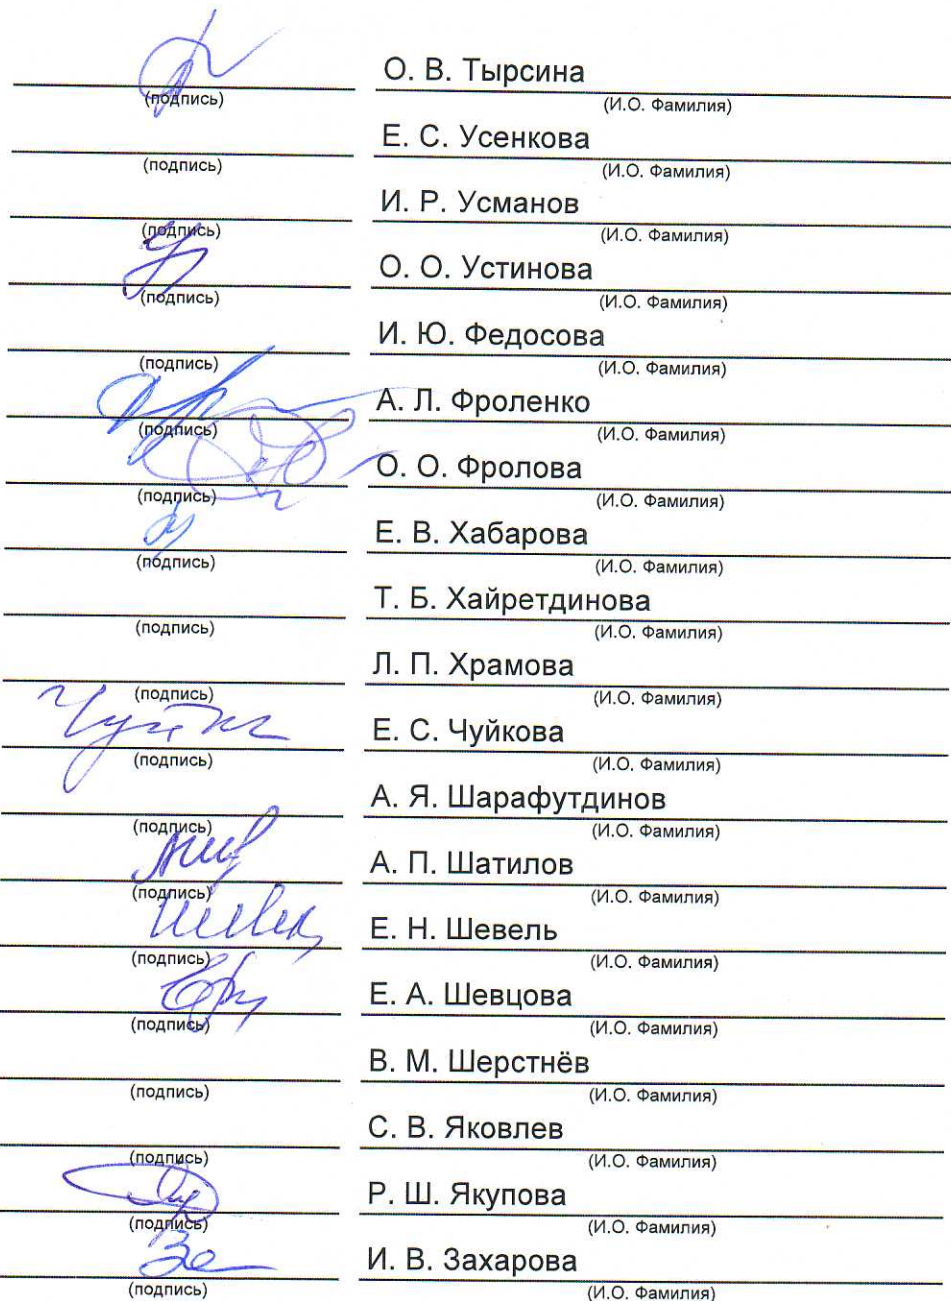 О. В. Тырсина
(подпись) (И.О. Фамилия)
Е. С. Усенкова
(подпись) (И.О. Фамилия)
И. Р. Усманов
(подпись) (И.О. Фамилия)
О. О. Устинова
(подпись) (И.О. Фамилия)
И. Ю. Федосова
(подпись) (И.О. Фамилия)
А. Л. Фроленко
(подпись) (И.О. Фамилия)
О. О. Фролова
(подпись) (И.О. Фамилия)
Е. В. Хабарова
(подпись) (И.О. Фамилия)
Т. Б. Хайретдинова
(подпись) (И.О. Фамилия)
Л. П. Храмова
(подпись) (И.О. Фамилия)
Е. С. Чуйкова
(подпись) (И.О. Фамилия)
А. Я. Шарафутдинов
(подпись) (И.О. Фамилия)
А. П. Шатилов
(подпись) (И.О. Фамилия)
Е. Н. Шевель
(подпись) (И.О. Фамилия)
Е. А. Шевцова
(подпись) (И.О. Фамилия)
В. М. Шерстнёв
(подпись) (И.О. Фамилия)
С. В. Яковлев
(подпись) (И.О. Фамилия)
Р. Ш. Якупова
(подпись) (И.О. Фамилия)
И. В. Захарова
(подпись) (И.О. Фамилия)